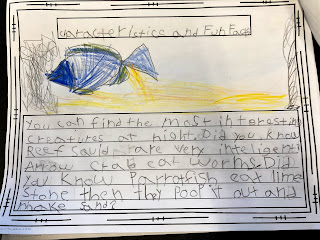 Characteristics and Fun Facts
You can find the most interesting
creatures at night. Did you know
Reef Squids are very intelligent
Arrow Crab eat worms. Did
You Know Parrotfish eat lime
Stone then they Poop it out and
make sand?